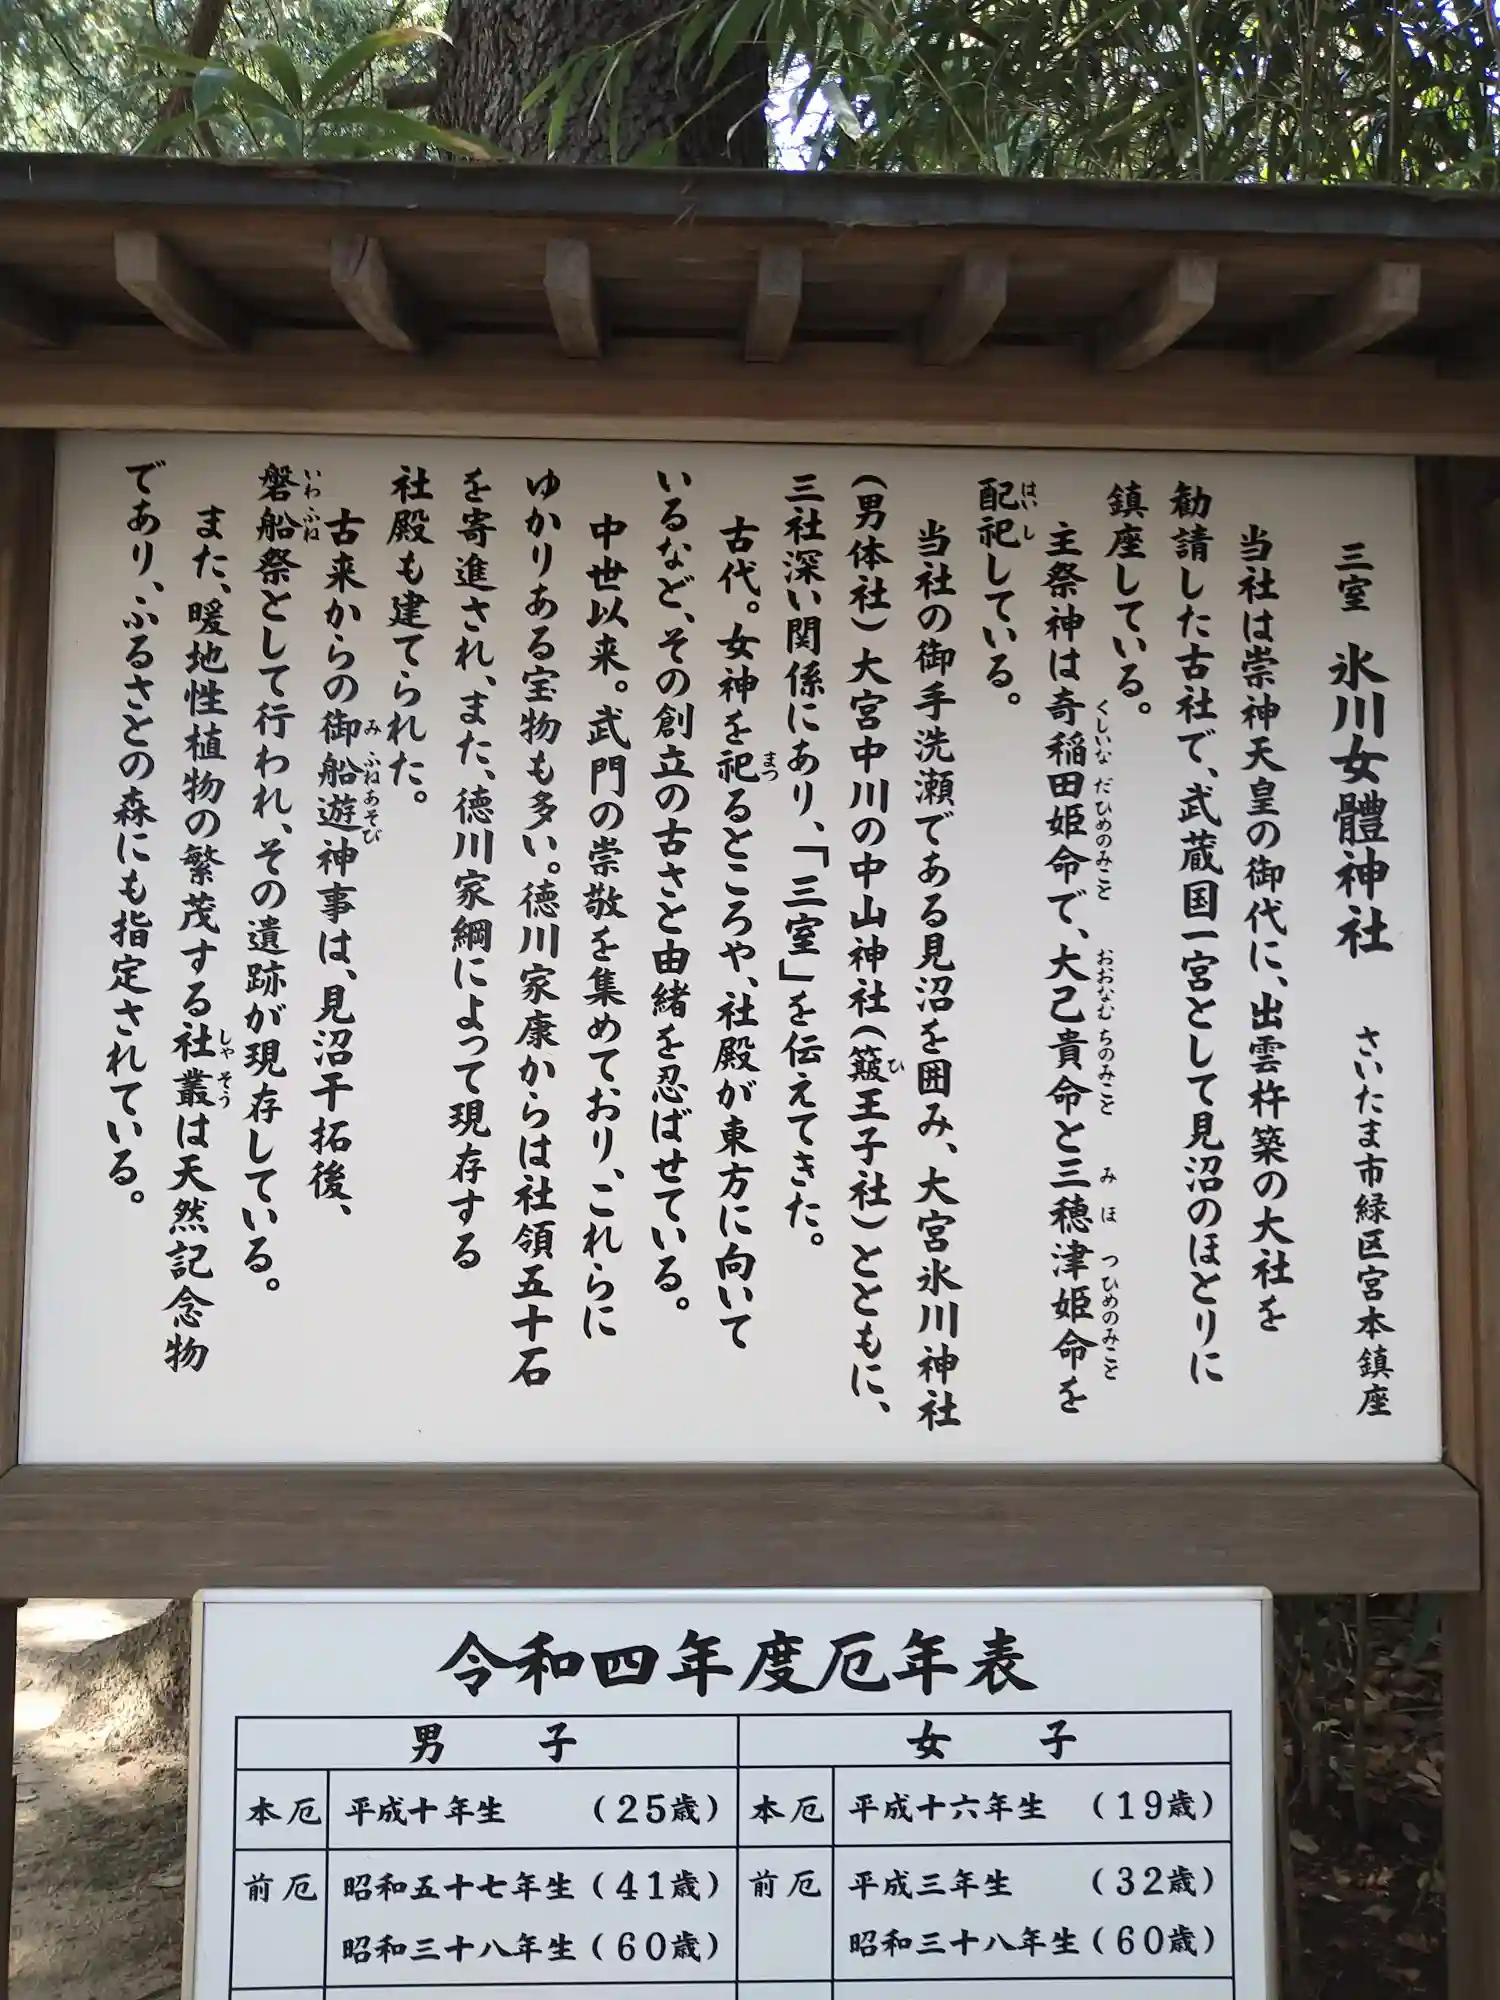 三室　氷川女體神社　さいたま市緑区宮本鎮座
当社は崇神天皇の御代に、出雲杵築の大社を
勧請した古社で、武蔵国一宮として見沼のほとりに
鎮座している。
主祭神は奇稲田姫命で、大己貴命と三穂津姫命を
くしいなだひめのみこと　おおなむちのみこと　みほつひめのみこと
配祀している。
はいし
当社の御手洗瀬である見沼を囲み、大宮氷川神社
(男体社)大宮中川の中山神社(簸王子社)とともに、
ひ
三社深い関係にあり、「三室」を伝えてきた。
古代。女神を祀るところや、社殿が東方に向いて
まつ
いるなど、その創立の古さと由緒を忍ばせている。
中世以来。武門の崇敬を集めており、これらに
ゆかりある宝物も多い。徳川家康からは社領五十石
を寄進され、また、徳川家綱によって現存する
社殿も建てられた。
古来からの御船遊神事は、見沼干拓後、
みふねあそび
磐船祭として行われ、その遺跡が現存している。
いわふね
また、暖地性植物の繁茂する社叢は天然記念物
しゃそう
であり、ふるさとの森にも指定されている。
令和四年度厄年表
男子　女子
本厄　平成十年生　(25歳)　本厄　平成十六年生　(19歳)
前厄　昭和五十七年生(41歳)　前厄　平成三年生　(32歳)
昭和三十八年生(60歳)　昭和三十八年生(60歳)